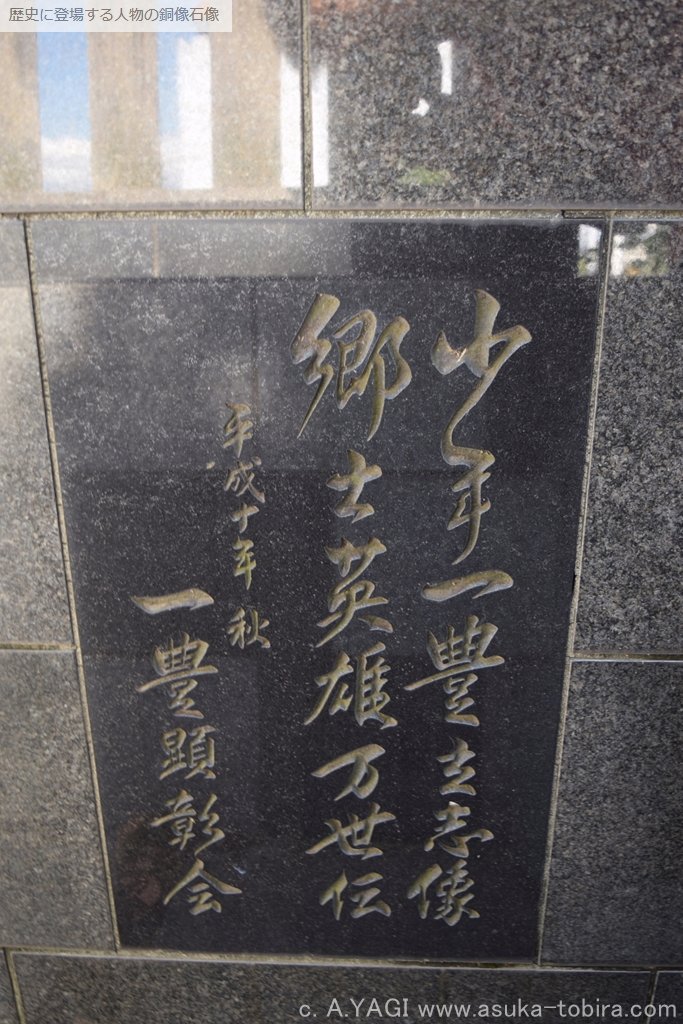 歴史に登場する人物の銅像石像
少年一豊立志像
郷士英雄万世伝
平成十年秋
一豊顕彰会
c. A.YAGI www.asuka-tobira.com